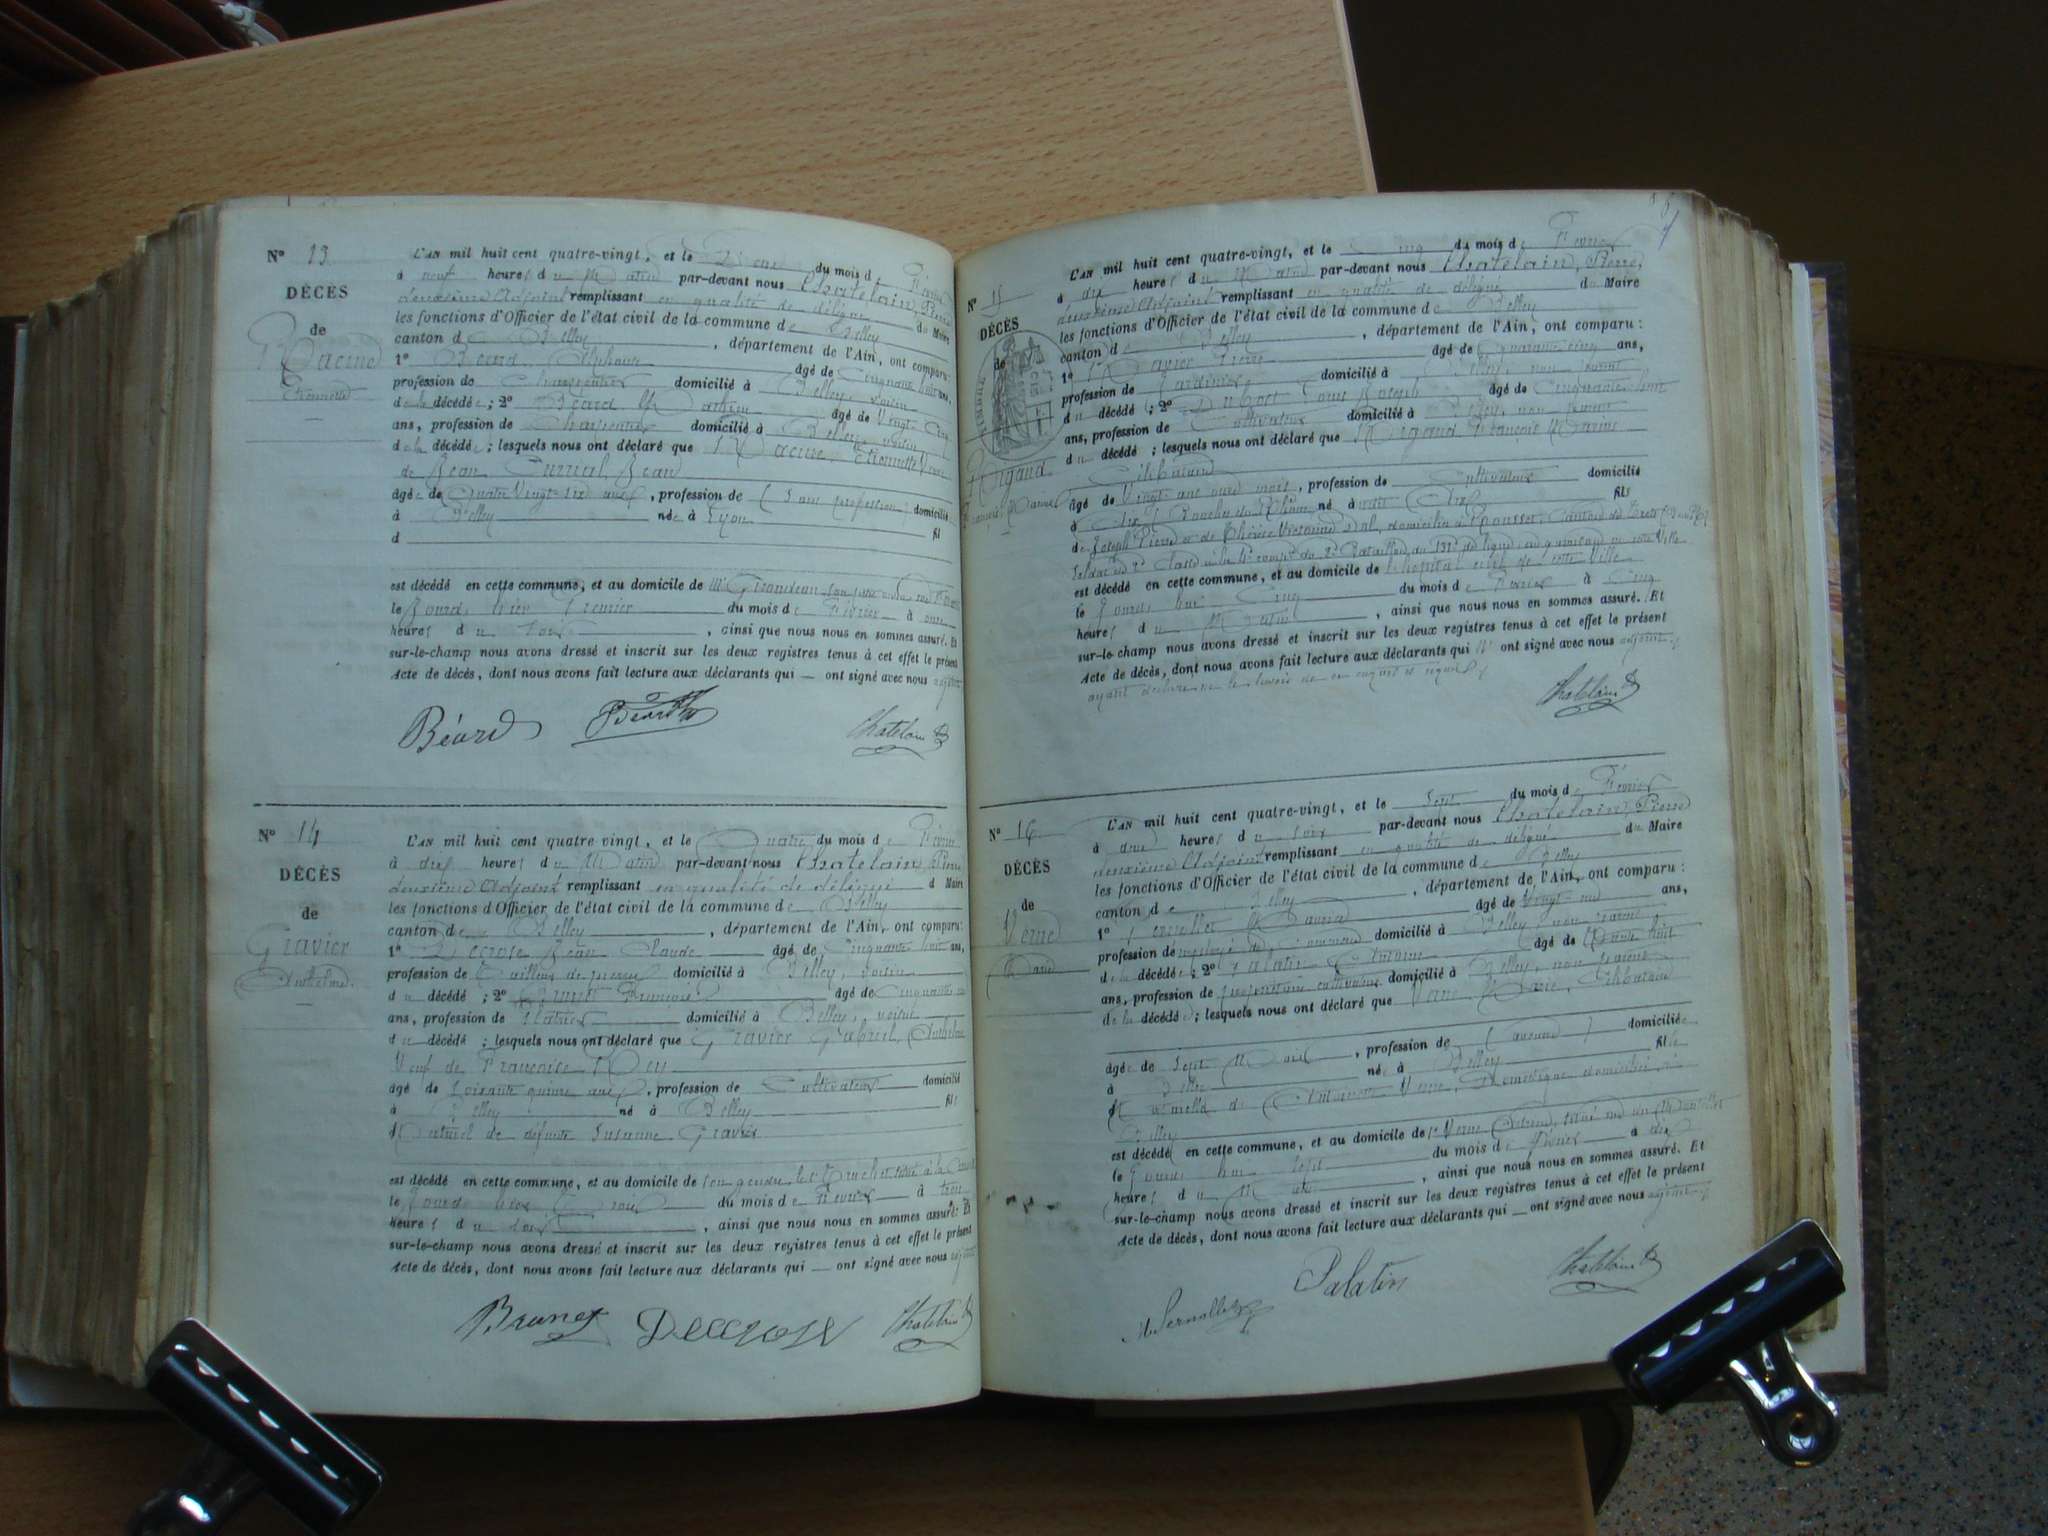 N° 13
DÉCÈS
de
Racine
Etiennette
L'AN mil huit cent quatre-vingt, et le Deux du mois de Février
à neuf heures du Matin par-devant nous Chatelain, Pierre
deuxième Adjoint remplissant en qualité de délégué du Maire
les fonctions d'Officier de l'état civil de la commune de Belley
canton de Belley, département de l'Ain, ont comparu:
1° Béard Alphonse âgé de Cinquante huit ans,
profession de Charpentier domicilié à Belley, voisin
de la décédée; 2° Béard âgé de Vingt-Cinq
ans, profession de Charpentier domicilié à Belley, voisin
de la décédée; lesquels nous ont déclaré que Racine, Etiennette Veuve
de Jean
âgée de Quatre Vingt-six ans, profession de (sans profession) domicilié
à Belley née à Lyon
fil
d
est décédé en cette commune, et au domicile de
le Jourd'hier Premier du mois de Février à onze
heures du soir, ainsi que nous nous en sommes assuré. Et
sur-le-champ nous avons dressé et inscrit sur les deux registres tenus à cet effet le présent
Acte de décès, dont nous avons fait lecture aux déclarants qui — ont signé avec nous adjoint
Béard Béard Chatelain
N° 14
DÉCÈS
de
Gravier
Anthelme
L'AN mil huit cent quatre vingt, et le Quatre du mois de Février
à dix heures du Matin par-devant nous Chatelain, Pierre
deuxième Adjoint remplissant en qualité de délégué d Maire
les fonctions d'Officier de l'état civil de la commune de Belley
canton de Belley, département de l'Ain, ont comparu:
1° Decrose Jean Claude âgé de Cinquante huit ans,
profession de Tailleur de pierres domicilié à Belley, voisin
du décédé; 2° Brunet François âgé de Cinquante
ans, profession de Platrier domicilié à Belley, voisin
du décédé; lesquels nous ont déclaré que Gravier Gabriel, Anthelme
Veuf de Françoise Rey
âgé de Soixante quinze ans, profession de Cultivateur domicilié
à Belley né à Belley fils
Naturel de défunte Susanne Gravier
est décédé en cette commune, et au domicile de son gendre
le Jourd'hier Trois du mois de Février à trois
heures du soir, ainsi que nous nous en sommes assuré. Et
sur-le-champ nous avons dressé et inscrit sur les deux registres tenus à cet effet le présent
Acte de décès, dont nous avons fait lecture aux déclarants qui — ont signé avec nous adjoint
Brunet Decrose Chatelain
N° 15
DÉCÈS
de
TIMBRE
Rigaud
L'AN mil huit cent quatre-vingt, et le Cinq du mois de Février
à dix heures du Matin par-devant nous Chatelain, Pierre,
deuxième Adjoint remplissant en qualité de délégué du Maire
les fonctions d'Officier de l'état civil de la commune de Belley
canton de Belley, département de l'Ain, ont comparu:
1° Pierre âgé de Quarante cinq ans,
profession de Jardinier domicilié à Belley, non parent
du décédé; 2° Joseph âgé de Cinquante huit
ans, profession de Cultivateur domicilié à Belley, non parent
du décédé; lesquels nous ont déclaré que Rigaud François Marius
Célibataire
âgé de Vingt ans onze mois, profession de Cultivateur domicilié
à Aix (Bouches du Rhône) né à Aix fils
de Joseph Pierre et de Thérèse
Soldat de 2e Classe du 2e Bataillon du de ligne, en garnison en cette Ville
est décédé en cette commune, et au domicile de l'hôpital civil de cette Ville
le Jourd'hui Cinq du mois de Février à Cinq
heures du Matin, ainsi que nous nous en sommes assuré. Et
sur-le-champ nous avons dressé et inscrit sur les deux registres tenus à cet effet le présent
Acte de décès, dont nous avons fait lecture aux déclarants qui N' ont signé avec nous adjoint
ayant déclaré ne le savoir de ce enquis et requis
Chatelain
N° 16
DÉCÈS
de
Verne
Marie
L'AN mil huit cent quatre-vingt, et le Sept du mois de Février
à une heures du soir par-devant nous Chatelain, Pierre
deuxième Adjoint remplissant en qualité de délégué du Maire
les fonctions d'Officier de l'état civil de la commune de Belley
canton de Belley, département de l'Ain, ont comparu:
1° âgé de Vingt-un ans,
profession de employé de commerce domicilié à Belley, non parent
de la décédée; 2° Palatin Antoine âgé de Trente huit
ans, profession de propriétaire cultivateur domicilié à Belley, non parent
de la décédée; lesquels nous ont déclaré que Verne Marie, Célibataire
âgée de Sept Mois, profession de (aucune) domiciliée
à Belley née à Belley fille
Naturelle de Verne, Domestique domiciliée à
Belley
est décédé en cette commune, et au domicile de
le Jourd'hui sept du mois de février à dix
heures du Matin, ainsi que nous nous en sommes assuré. Et
sur-le-champ nous avons dressé et inscrit sur les deux registres tenus à cet effet le présent
Acte de décès, dont nous avons fait lecture aux déclarants qui — ont signé avec nous adjoint
Palatin Chatelain